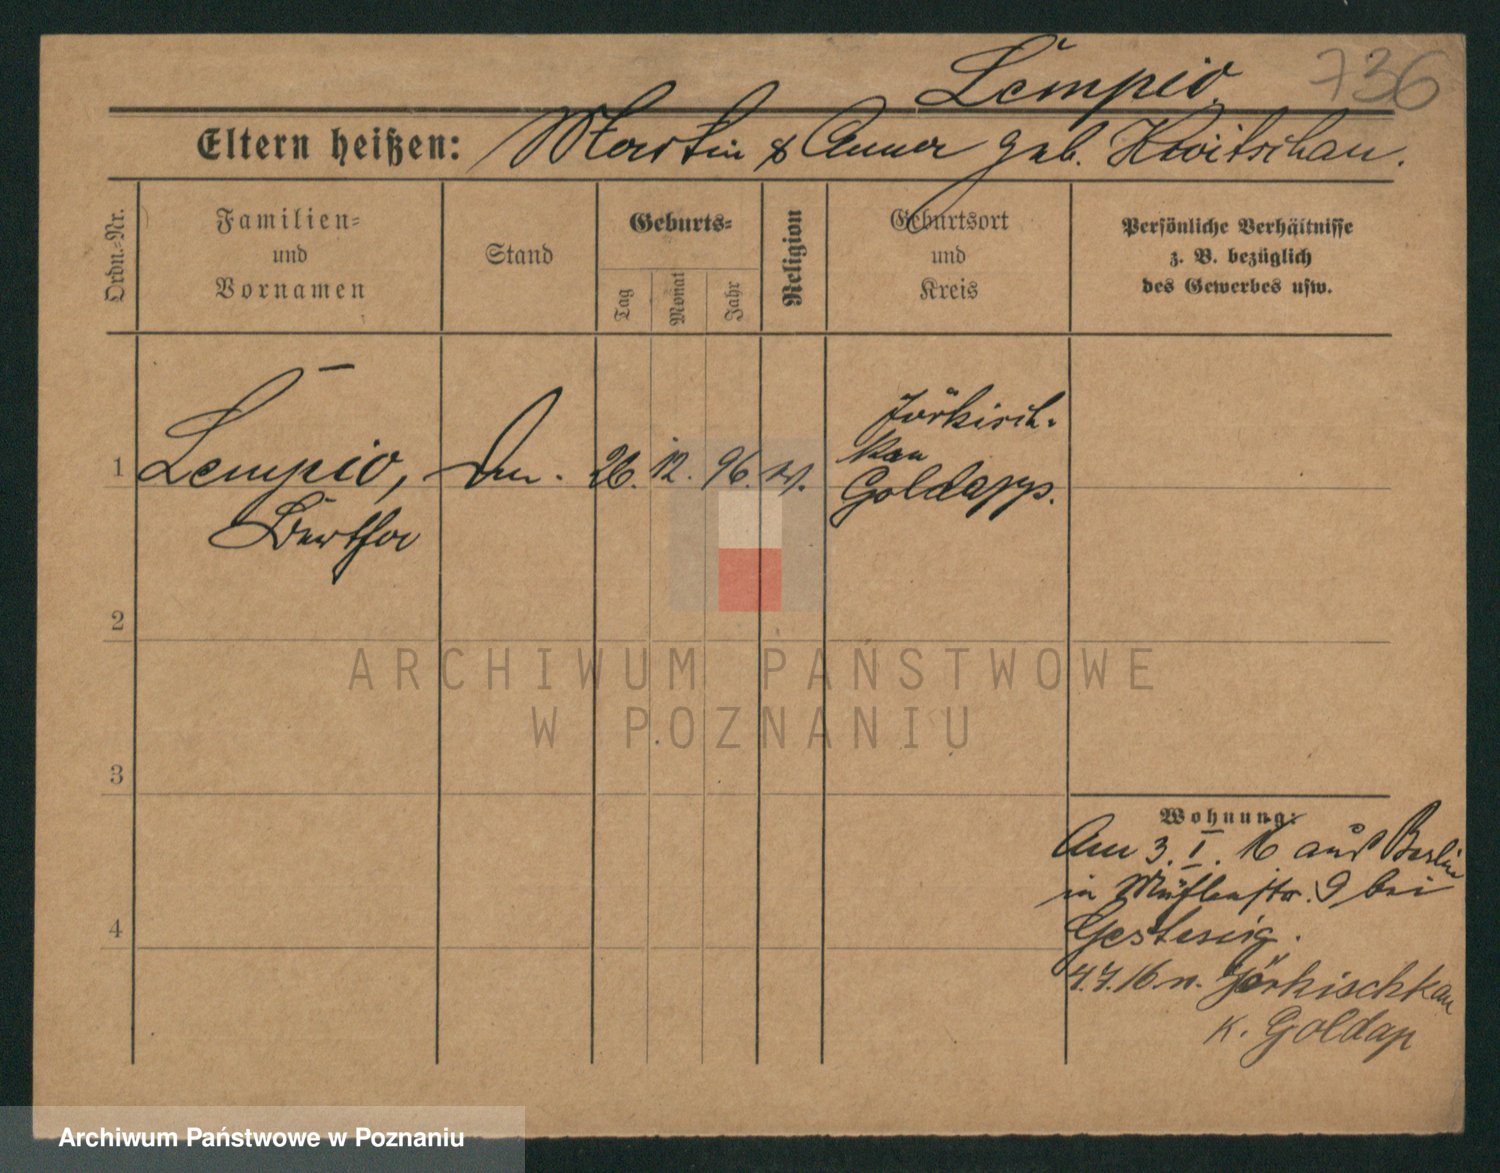 Lempio,
736
Eltern heißen: Martin & Anna geb. Kwitschau.
Ordn.-Nr.
Familien- und Vornamen
Stand
Geburts-
Tag
Monat
Jahr
Religion
Geburtsort und Kreis
Persönliche Verhältnisse
z. B. bezüglich
des Gewerbes usw.
1
Lempio,
Bertha
26. 12. 96.
Jörkisch-
kau
Goldapp.
2
3
4
Wohnung:
Am 3. I. 16 aus Berlin
in Mühlenstr. 9 bei
4.7.16 n. Jörkischkau
K. Goldap
ARCHIWUM PAŃSTWOWE
W POZNANIU
Archiwum Państwowe w Poznaniu